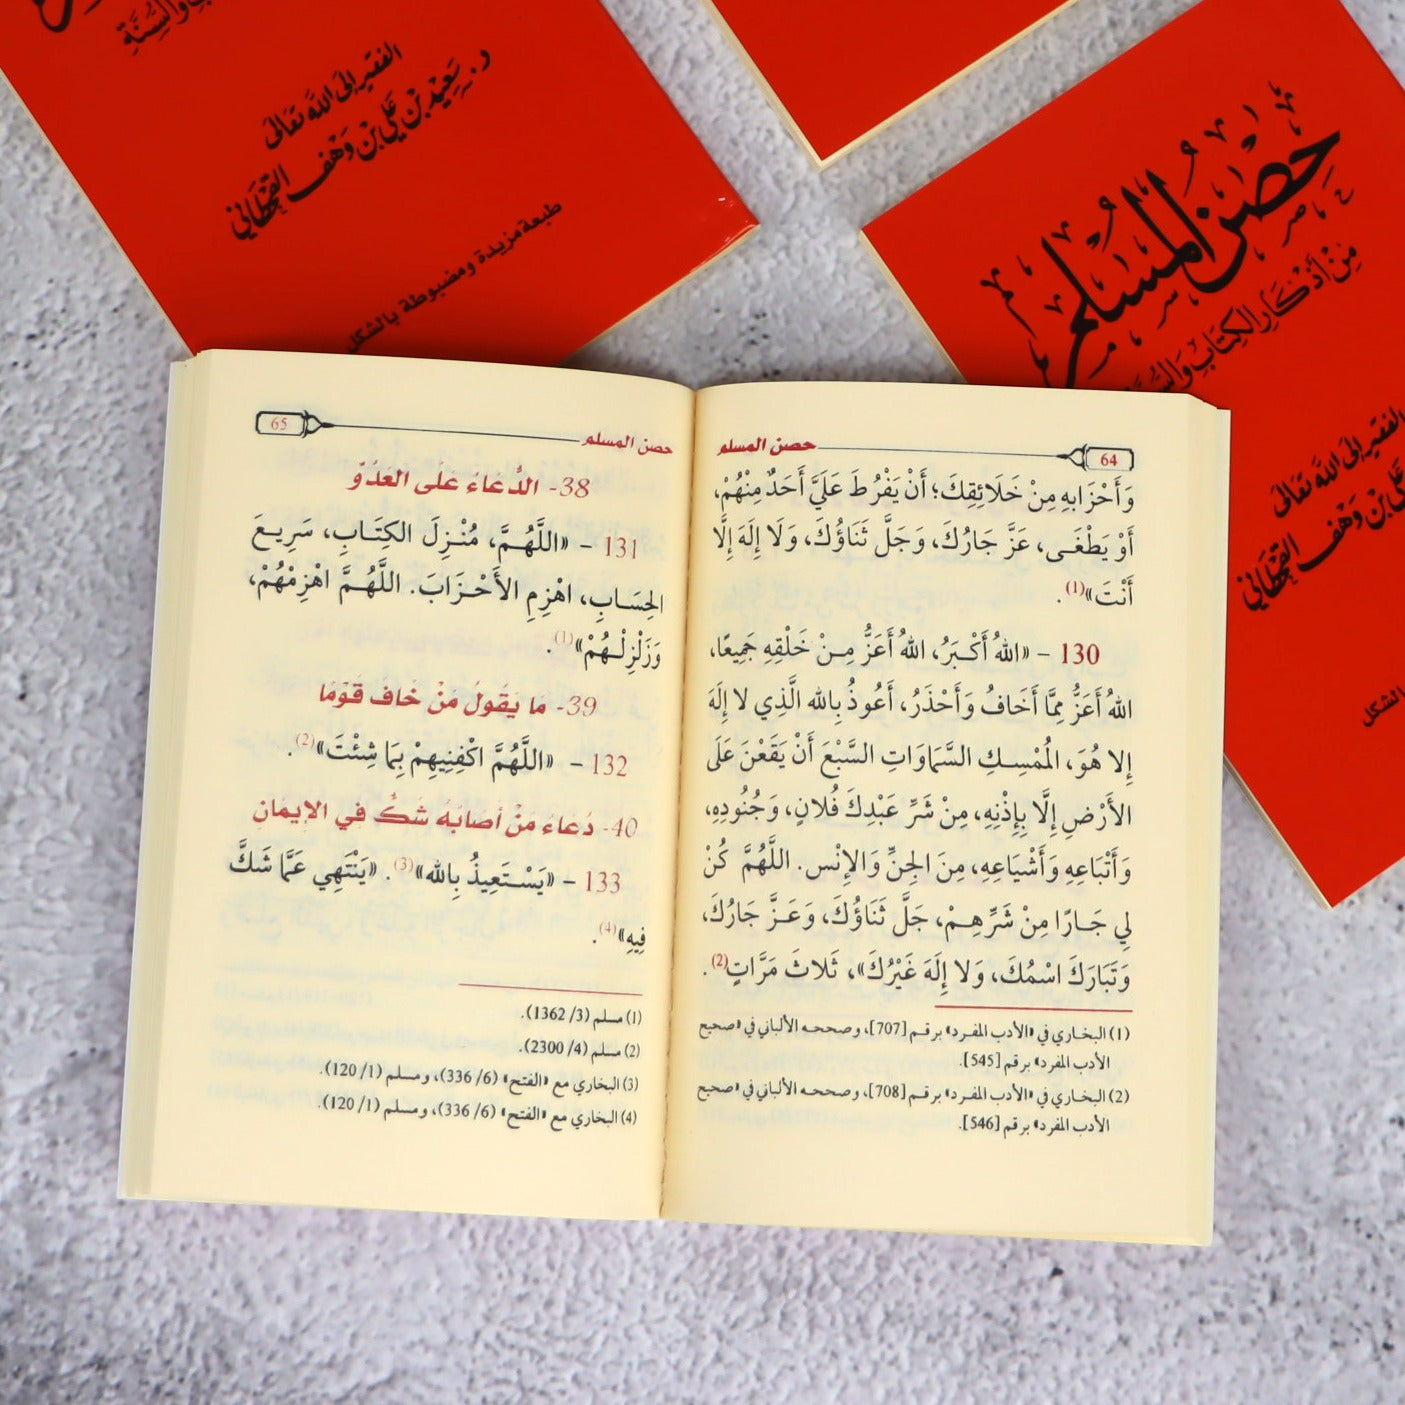 بِ وَالسُّنَّةِ
الفقير إلى الله تعالى
د. سَعِيد بْن عَلي بْن وَهَف القَحْطَانِي
طبعة مزيدة ومضبوطة بالشكل
حِصْنُ المُسْلِمِ
مِنْ أَذْكَارِ الكِتَابِ وَالسُّنَّ
الفقير إلى الله تعالى
عَلي بْن وَهَف القَحْطَانِي
بالشكل
64 حصن المسلم
وَأَحْزَابِهِ مِنْ خَلَائِقِكَ؛ أَنْ يَفْرُطَ عَلَيَّ أَحَدٌ مِنْهُمْ،
أَوْ يَطْغَـى، عَزَّ جَارُكَ، وَجَلَّ ثَنَاؤُكَ، وَلَا إِلَهَ إِلَّا
أَنْتَ»(1).
130 – «اللهُ أَكْـبَرُ، اللهُ أَعَزُّ مِـنْ خَلْقِهِ جَمِيعًا،
اللهُ أَعَزُّ مِمَّا أَخَافُ وَأَحْذَرُ، أَعُوذُ بِالله الَّذِي لا إِلَهَ
إِلا هُوَ، المُمْسِـكِ السَّمَاوَاتِ السَّبْعَ أَنْ يَقَعْنَ عَلَى
الأَرْضِ إِلَّا بِإِذْنِهِ، مِنْ شَرِّ عَبْدِكَ فُلانٍ، وَجُنُودِهِ،
وَأَتْبَاعِهِ وَأَشْيَاعِهِ، مِنَ الجِنِّ وَالإِنْس. اللَّهُمَّ كُنْ
لِي جَـارًا مِنْ شَرِّهِـمْ، جَلَّ ثَنَاؤُكَ، وَعَـزَّ جَارُكَ،
وَتَبَارَكَ اسْمُكَ، وَلا إِلَهَ غَيْرُكَ»، ثَلاثَ مَرَّاتٍ(2).
(1) البخاري في «الأدب المفرد» برقم [707]، وصححه الألباني في «صحيح
الأدب المفرد» برقم [545].
(2) البخاري في «الأدب المفرد» برقم [708]، وصححه الألباني في «صحيح
الأدب المفرد» برقم [546].
حصن المسلم 65
38- الدُّعَاءُ عَلَى العَدُوِّ
131 – «اللَّهُـمَّ، مُنْـزِلَ الكِتَـابِ، سَرِيـعَ
الحِسَـابِ، اهْزِمِ الأَحْـزَابَ. اللَّهُـمَّ اهْزِمْهُمْ،
وَزَلْزِلْـهُمْ»(1).
39- مَا يَقُولُ مَنْ خَافَ قَوْمًا
132 – «اللَّهُمَّ اكْفِنِيهِمْ بِمَا شِئْتَ»(2).
40- دُعَاءُ مَنْ أَصَابَهُ شَكٌّ في الإِيمَانِ
133 – «يَسْـتَعِيذُ بِالله»(3). «يَنْتَهِي عَمَّا شَكَّ
فِيهِ»(4).
(1) مسلم (3/ 1362).
(2) مسلم (4/ 2300).
(3) البخاري مع «الفتح» (6/ 336)، ومسلم (1/ 120).
(4) البخاري مع «الفتح» (6/ 336)، ومسلم (1/ 120).